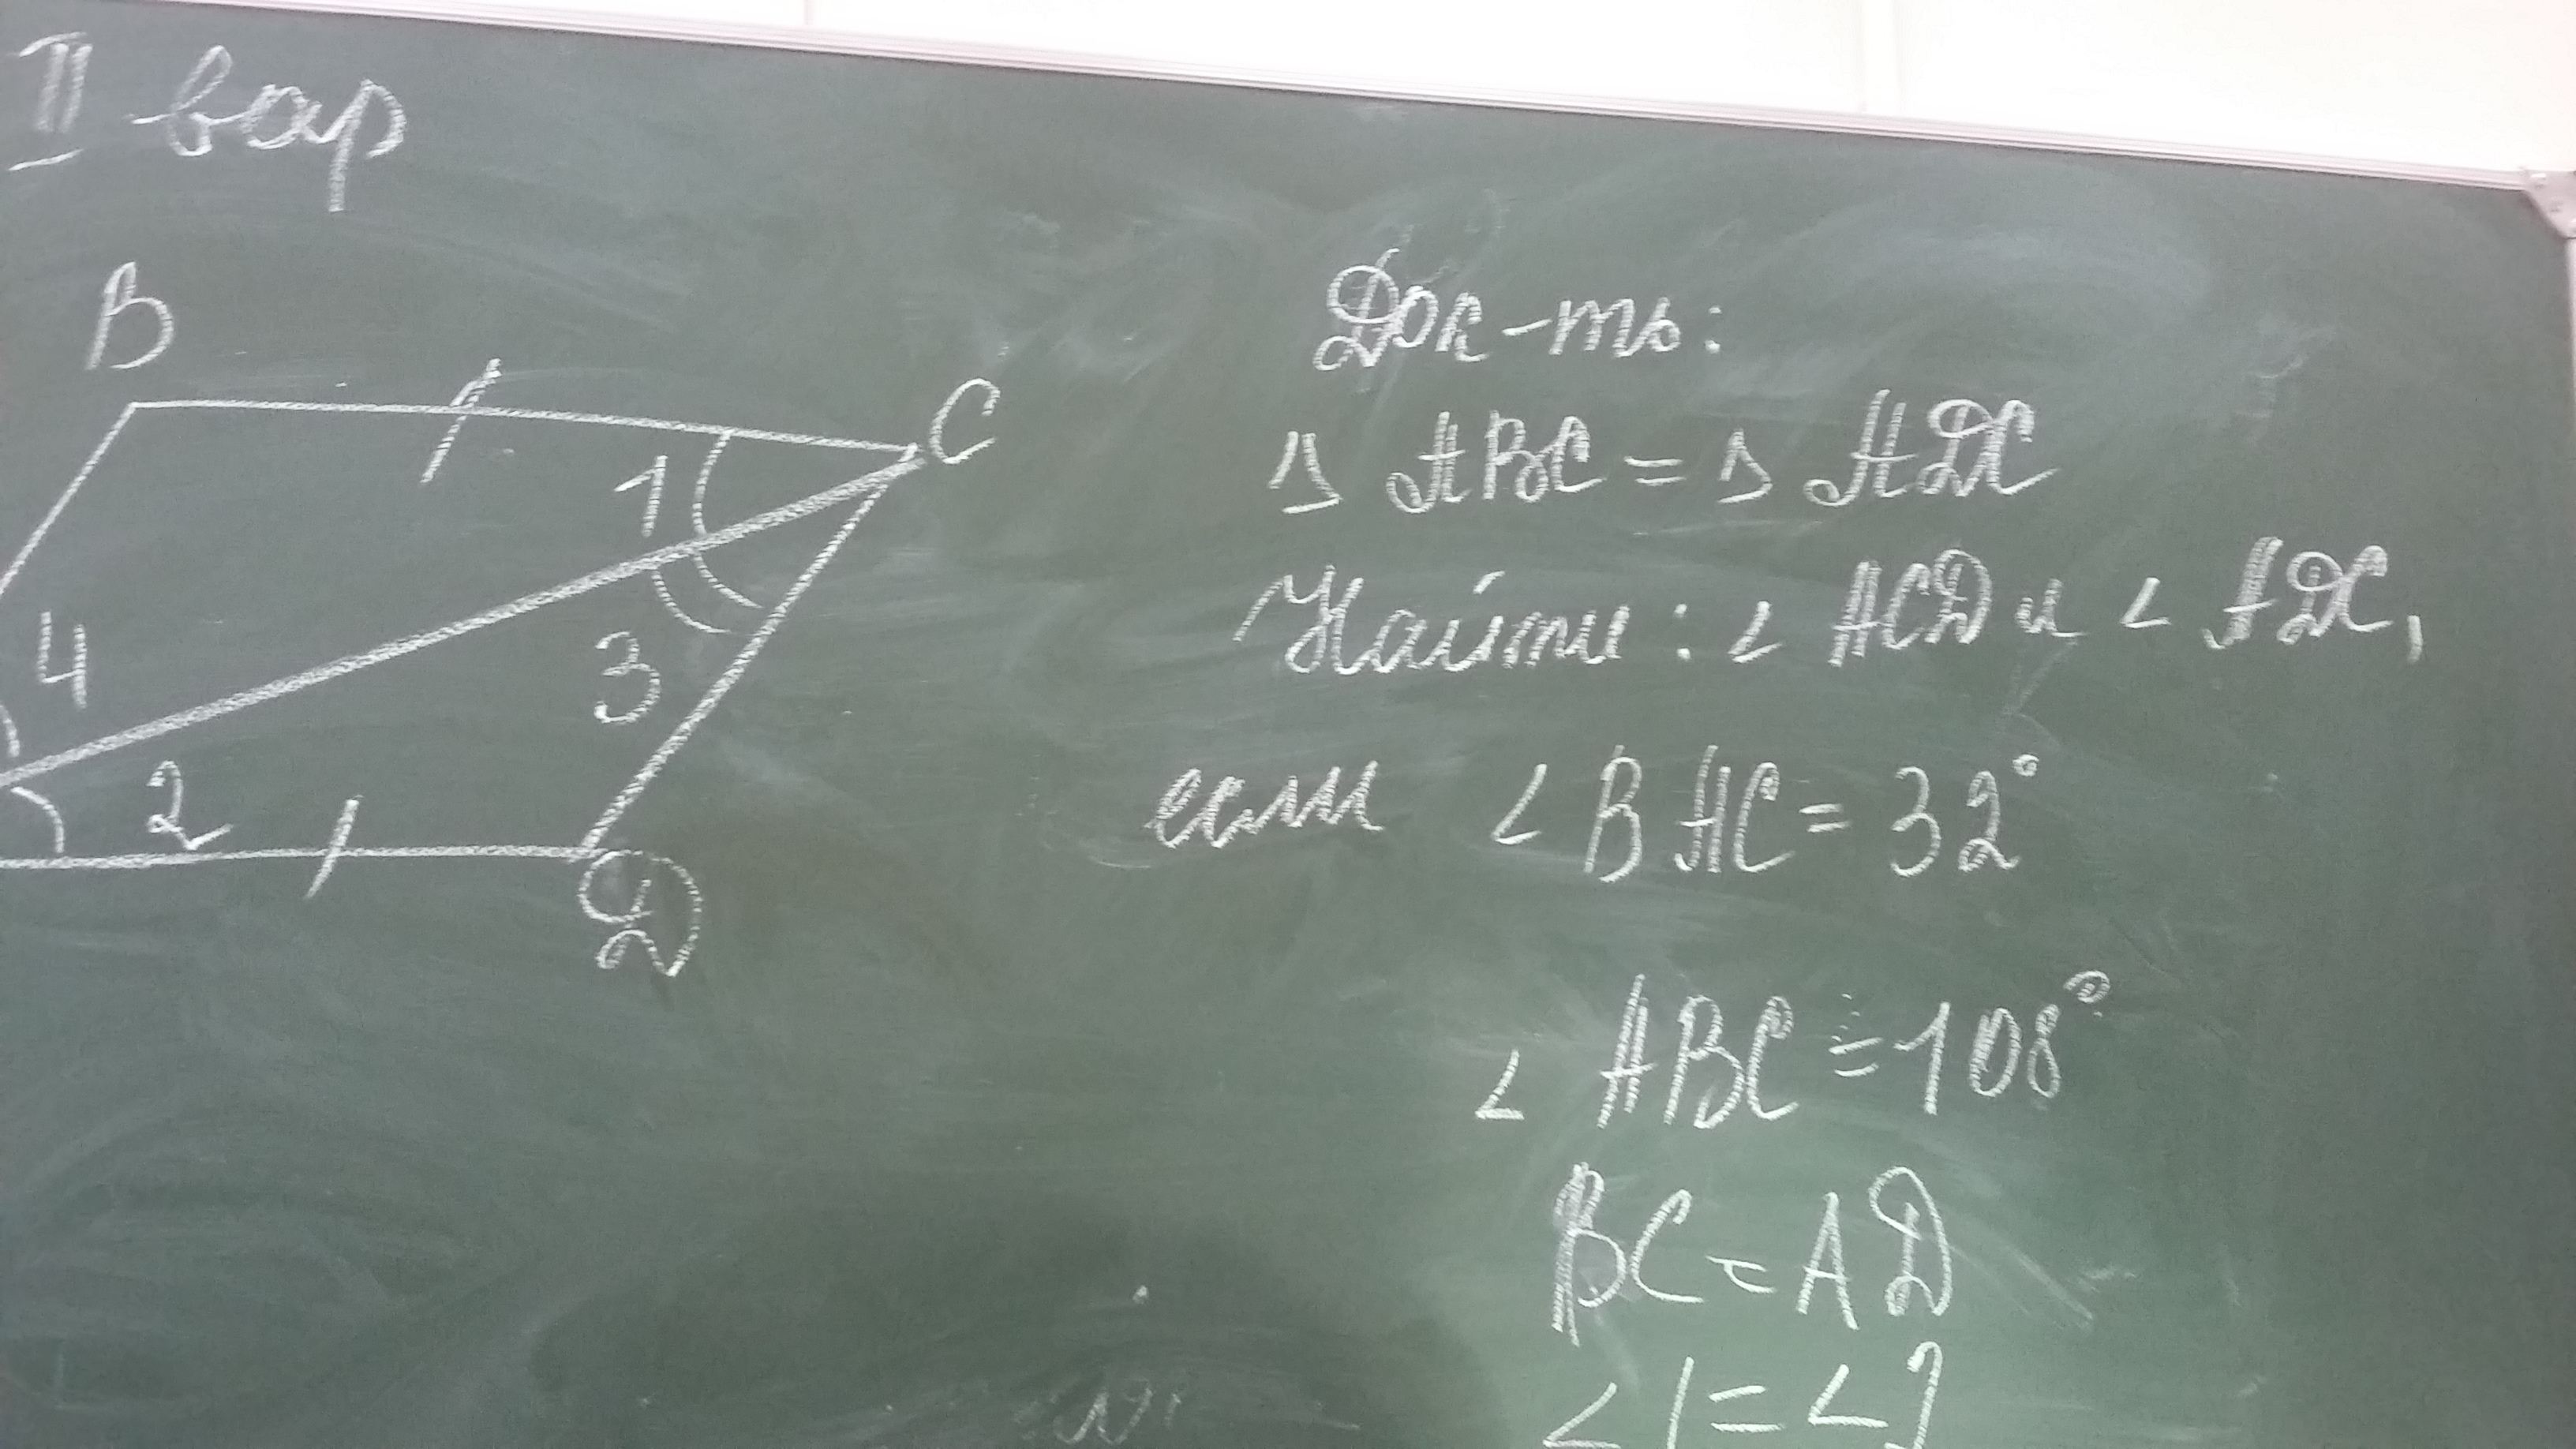 II вар
B
C
1
4
3
2
D
Док-ть:
△ ABC = △ ADC
Найти: ∠ ACD и ∠ ADC,
если ∠ BAC = 32°
∠ ABC = 108°
BC = AD
∠1 = ∠2